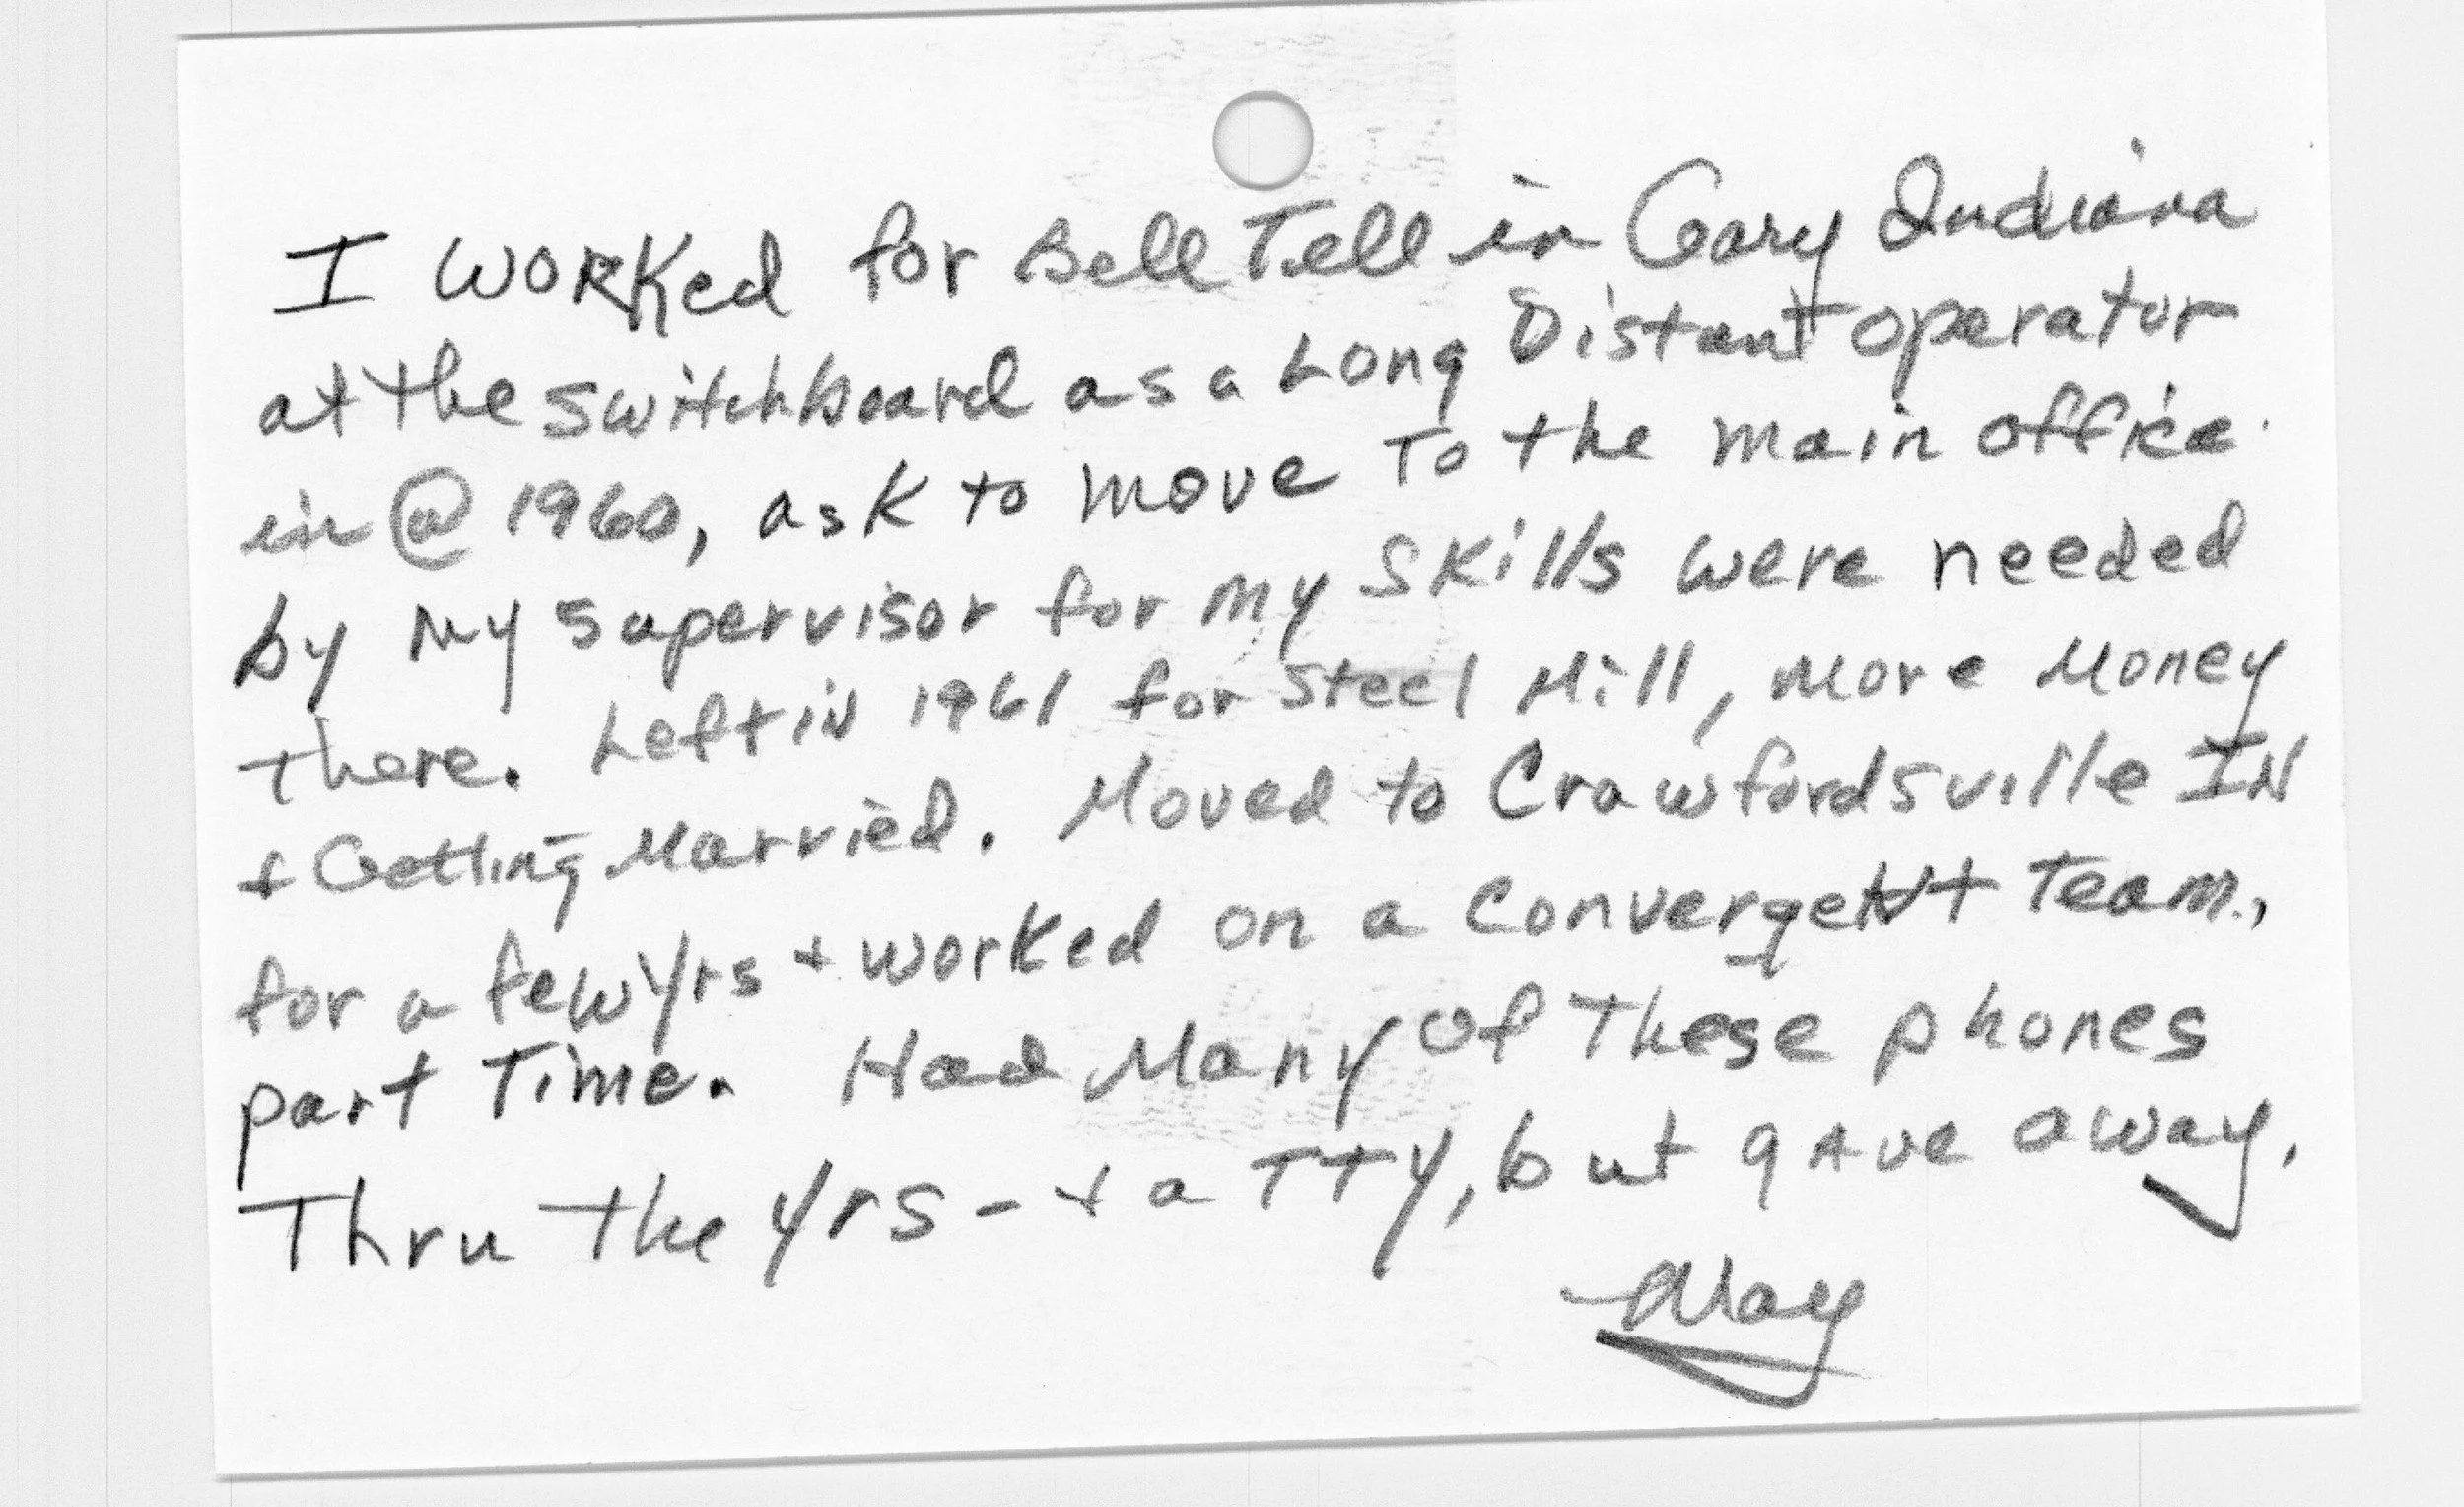 I worked for Bell Tell in Gary Indiana
at the switchboard as a Long Distant operator
in @ 1960, ask to move To the main office
by my supervisor for my skills were needed
there. Left in 1961 for Steel Mill, More Money
+ Getting Married. Moved to Crawfordsville IN
for a few yrs + worked on a Convergent Team,
part Time. Had Many of These phones
Thru the yrs - + a TTY, but gave away.
May